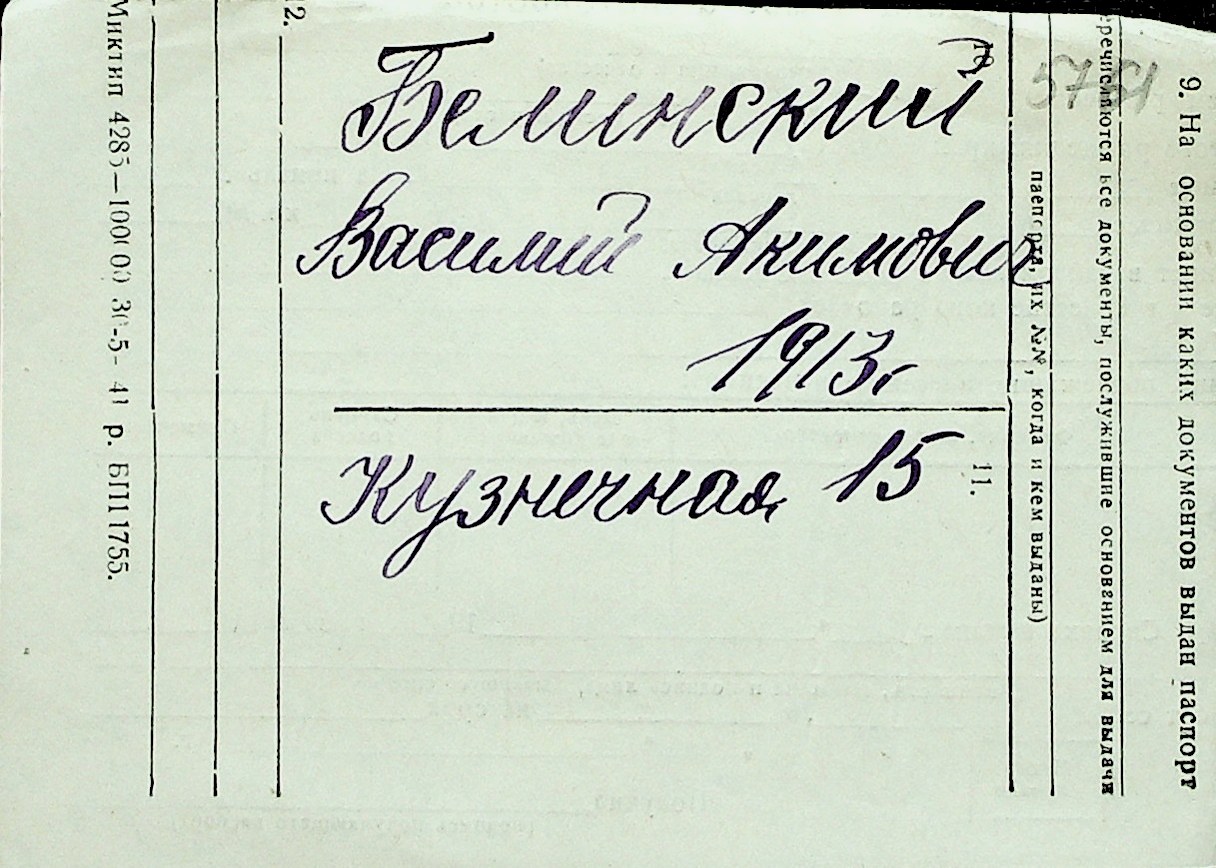 Белинский
Василий Акимович
1913г
Кузнечная 15
5751
9. На основании каких документов выдан паспорт
перечисляются все документы, послужившие основанием для выдачи
паспорта, их №№, когда и кем выданы)
10.
11.
12.
Миктип 4285—100000 30-5- 41 р. БП11755.